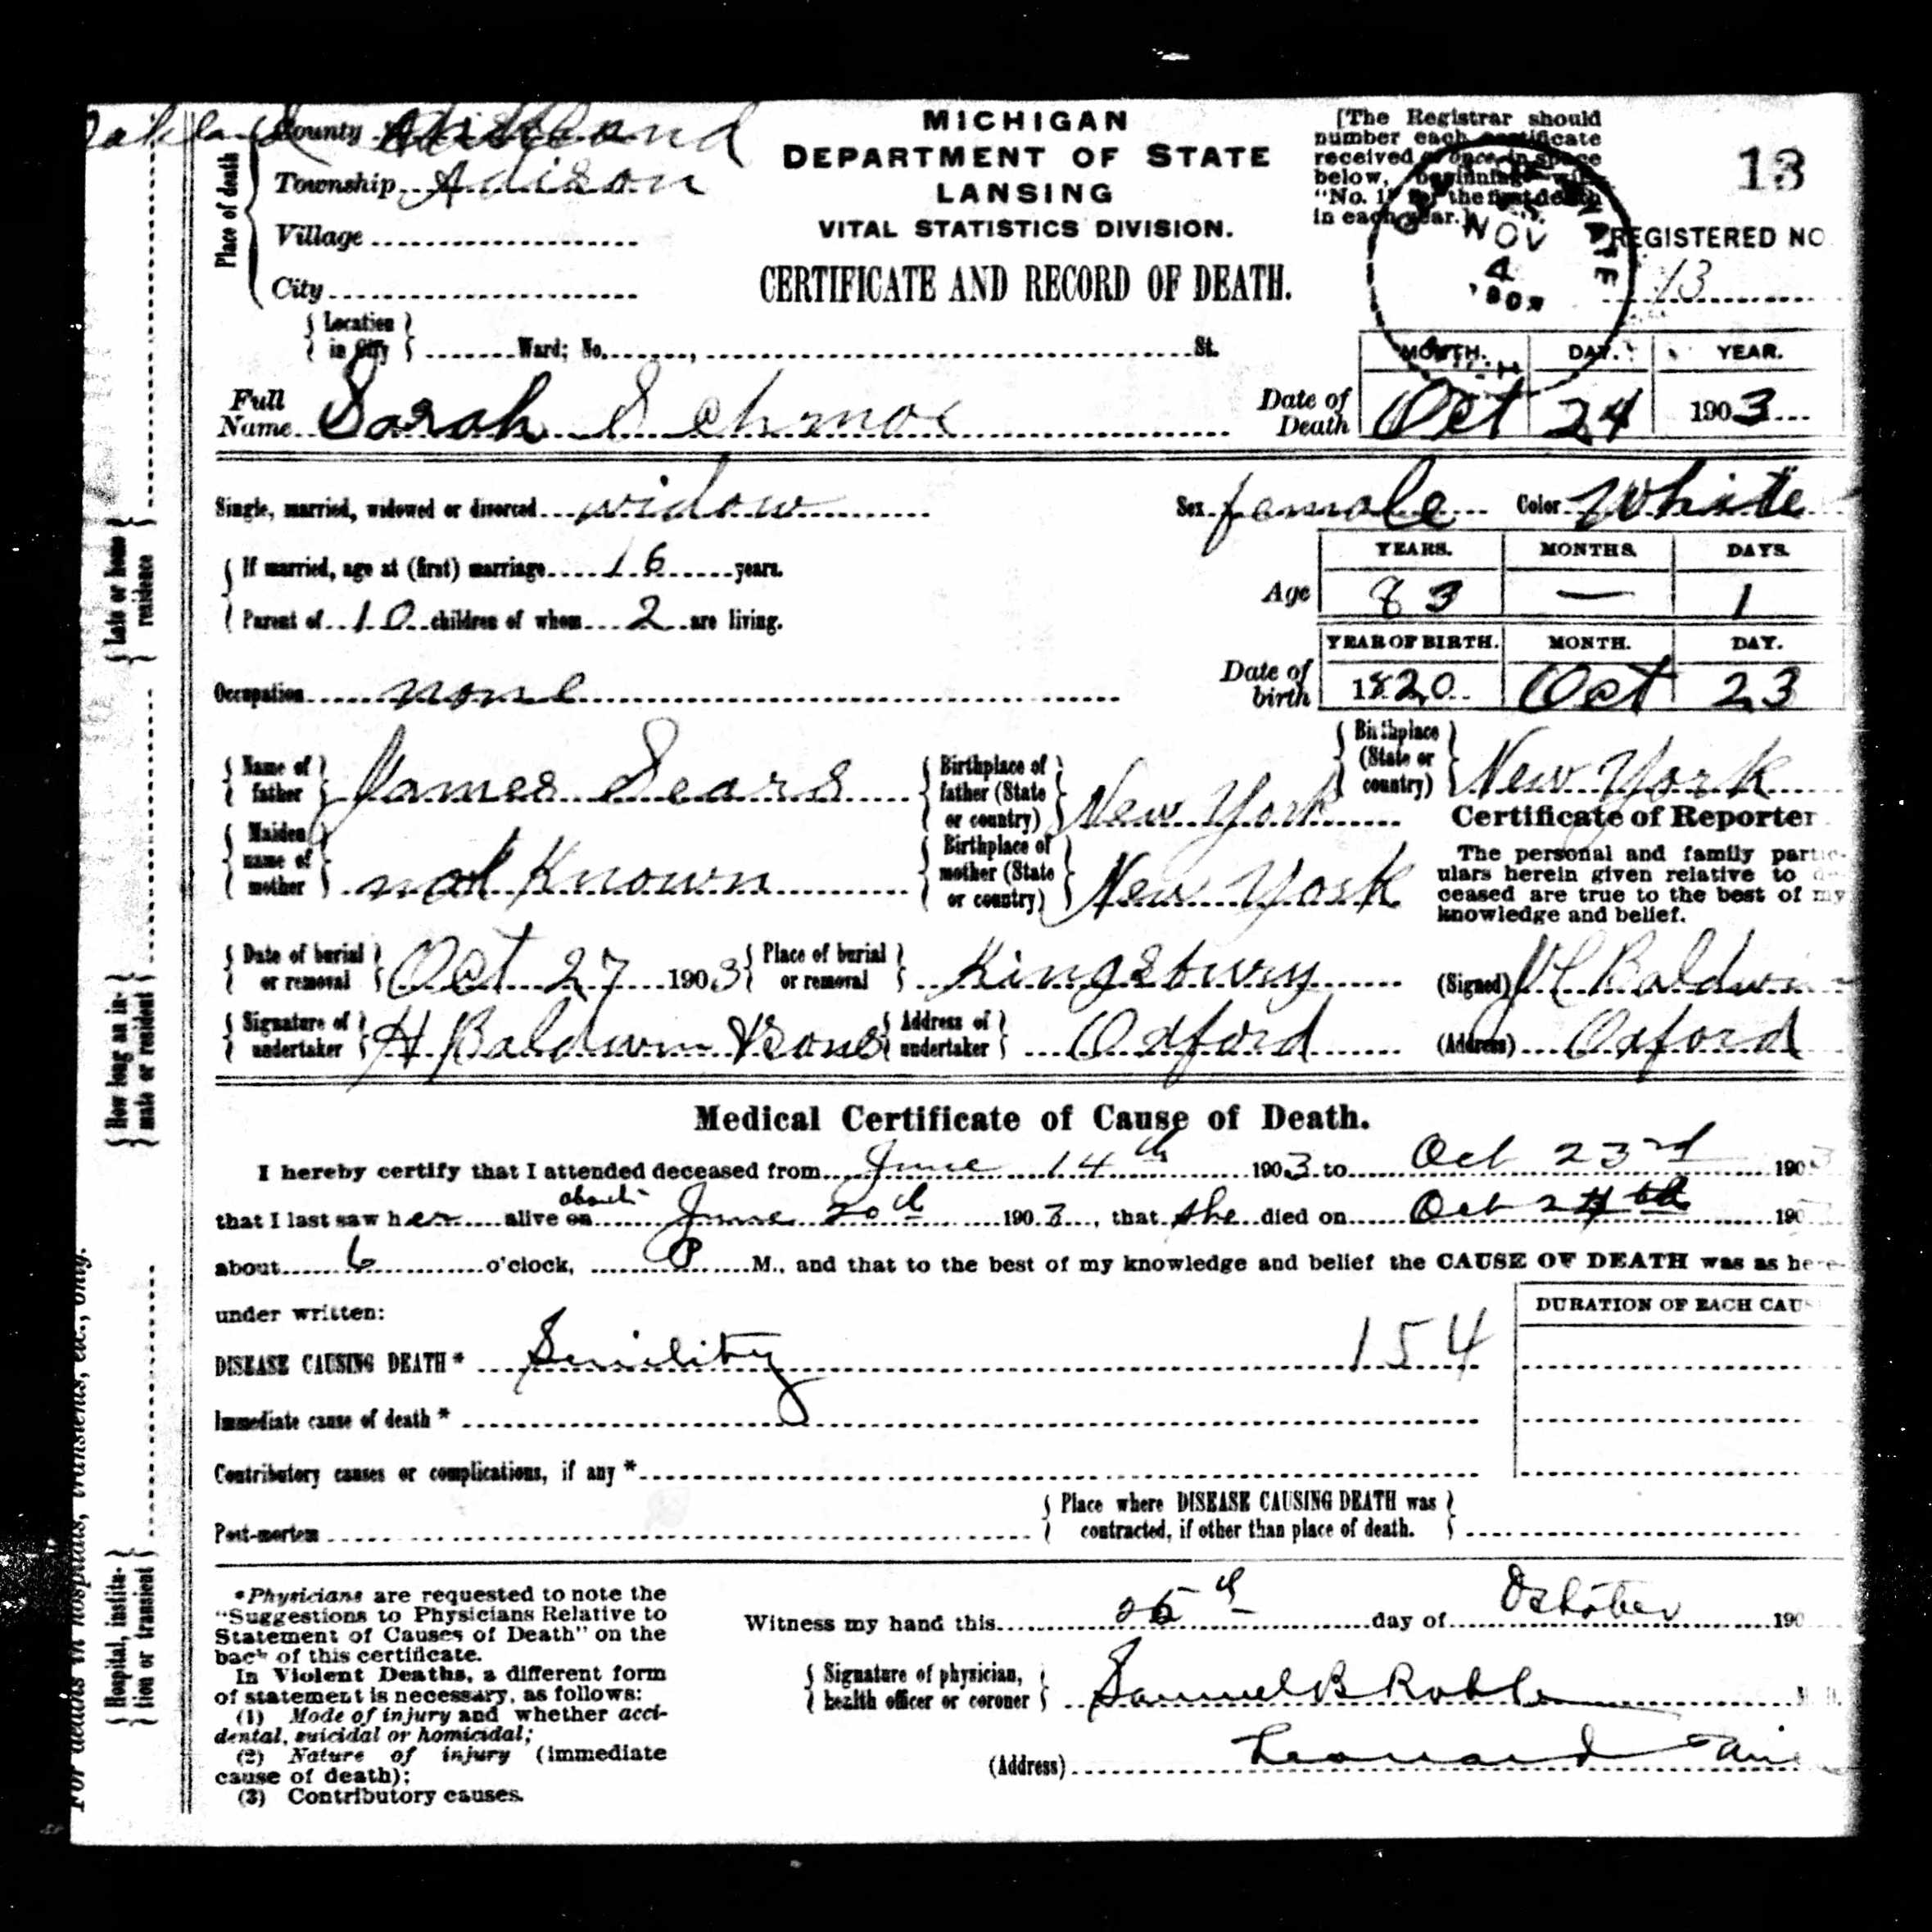 MICHIGAN
DEPARTMENT OF STATE
LANSING
VITAL STATISTICS DIVISION.
CERTIFICATE AND RECORD OF DEATH.
[The Registrar should
number each certificate
received once in space
below, beginning with
"No. 1" for the first death
in each year.]
13
REGISTERED NO.
13
NOV
4
Place of death
County Oakland
Township Adison
Village
City
Location in City Ward; No. , St.
Full Name Sarah Schmoe
Date of Death
MONTH. DAY. YEAR.
Oct 24 1903
Single, married, widowed or divorced widow
Sex female Color White
If married, age at (first) marriage 16 years.
Parent of 10 children of whom 2 are living.
Age
YEARS. MONTHS. DAYS.
83 — 1
Occupation none
Date of birth
YEAR OF BIRTH. MONTH. DAY.
1820 Oct 23
Name of father James Sears
Birthplace of father (State or country) New York
Birthplace (State or country) New York
Maiden name of mother not Known
Birthplace of mother (State or country) New York
Certificate of Reporter
The personal and family partic-
ulars herein given relative to de-
ceased are true to the best of my
knowledge and belief.
Date of burial or removal Oct 27 1903
Place of burial or removal Kingsbury
(Signed) Baldwin
Signature of undertaker H Baldwin & Sons
Address of undertaker Oxford
(Address) Oxford
Medical Certificate of Cause of Death.
I hereby certify that I attended deceased from June 14th 1903 to Oct 23rd 1903
about
that I last saw her alive on June 20th 1903, that she died on Oct 24th 190
about 6 o'clock, P M., and that to the best of my knowledge and belief the CAUSE OF DEATH was as here-
under written:
DURATION OF EACH CAUS
DISEASE CAUSING DEATH* Senility 154
Immediate cause of death*
Contributory causes or complications, if any*
Post-mortem
Place where DISEASE CAUSING DEATH was contracted, if other than place of death.
*Physicians are requested to note the
"Suggestions to Physicians Relative to
Statement of Causes of Death" on the
back of this certificate.
In Violent Deaths, a different form
of statement is necessary, as follows:
(1) Mode of injury and whether acci-
dental, suicidal or homicidal;
(2) Nature of injury (immediate
cause of death);
(3) Contributory causes.
Witness my hand this day of October 190
Signature of physician, health officer or coroner Samuel B
(Address) Leonard
Late or home residence
How long an in-mate or resident
Hospital, institu-tion or transient
For deaths in hospitals, transients, etc., only.